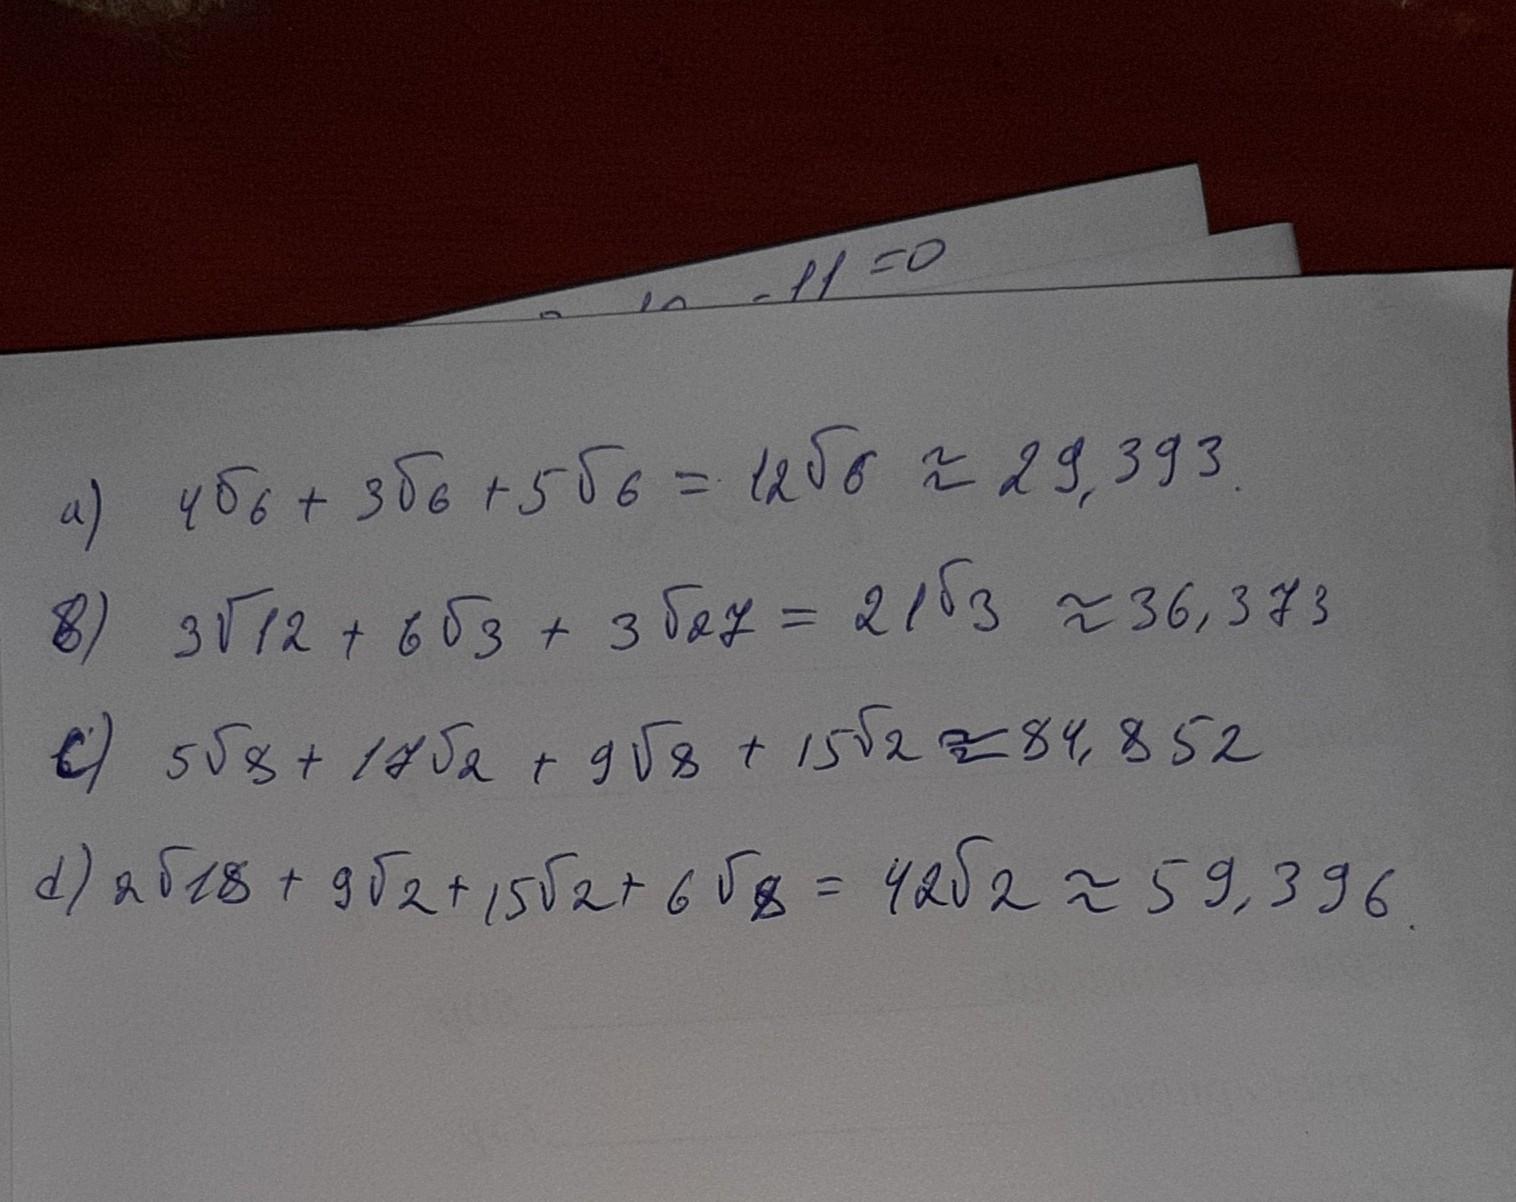 -11 = 0
a) 4√6 + 3√6 + 5√6 = 12√6 ≈ 29,393.
B) 3√12 + 6√3 + 3√27 = 21√3 ≈ 36,373
c) 5√8 + 17√2 + 9√8 + 15√2 ≈ 84,852
d) 2√18 + 9√2 + 15√2 + 6√8 = 42√2 ≈ 59,396.